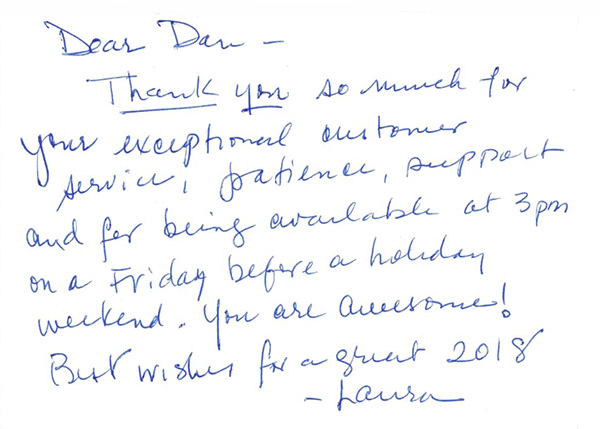 Dear Dan -
Thank you so much for
your exceptional customer
service, patience, support
and for being available at 3pm
on a Friday before a holiday
weekend. You are awesome!
Best wishes for a great 2018
- Laura